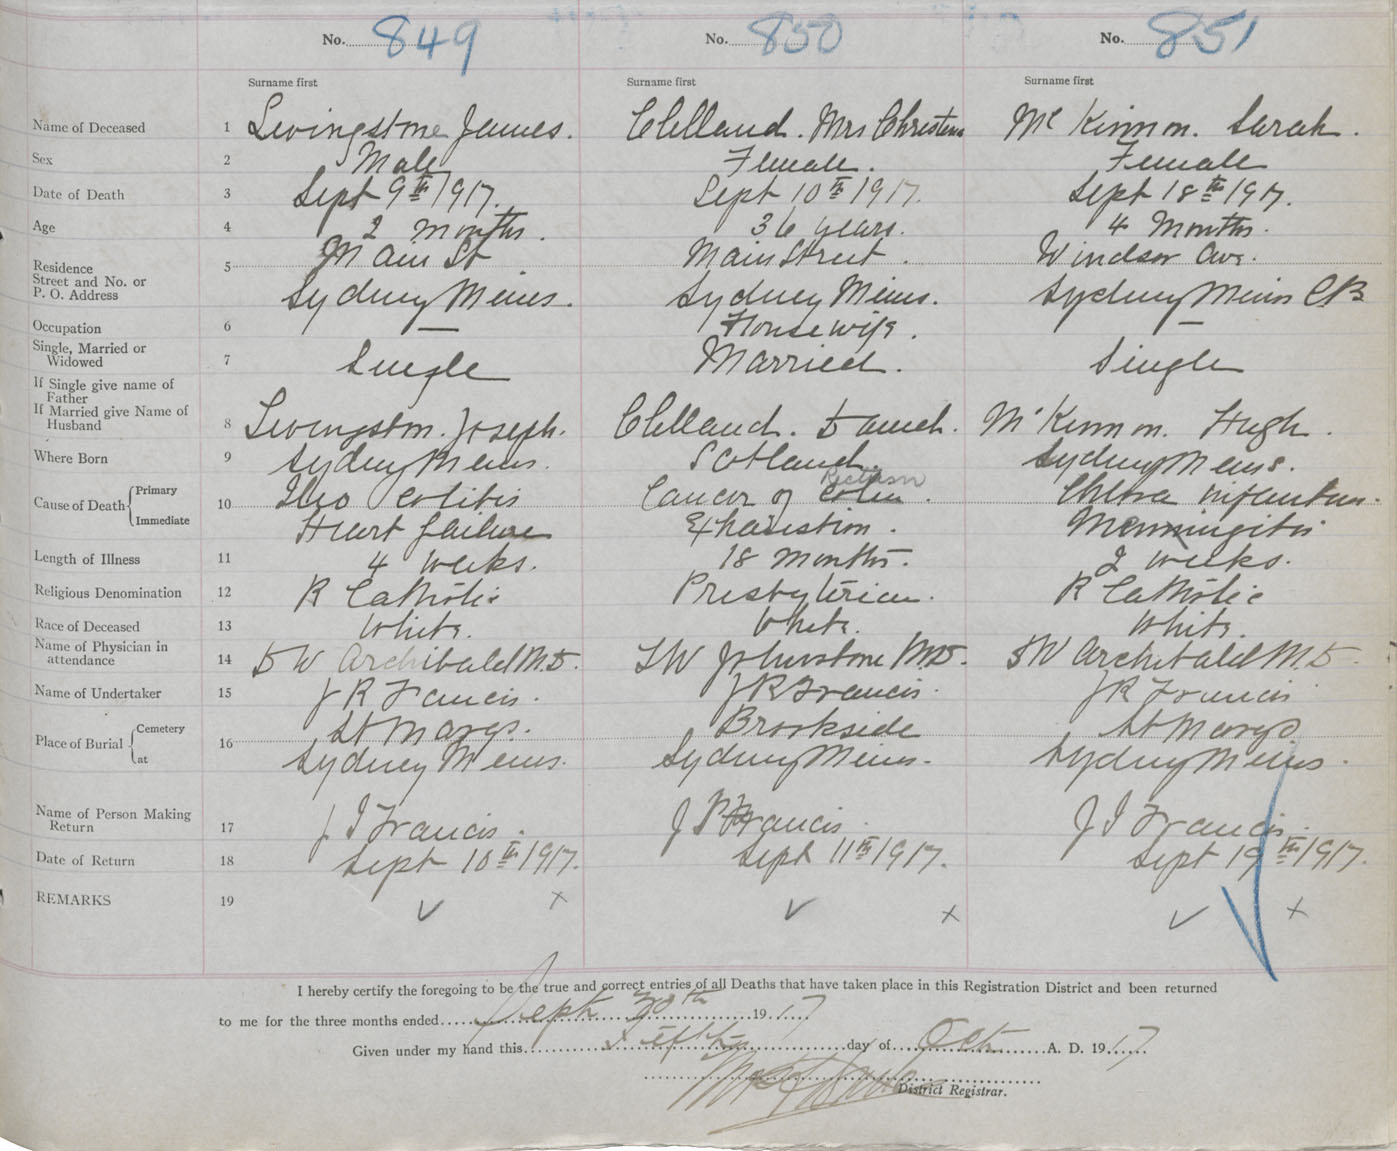 No. 849 No. 850 No. 851
Surname first Surname first Surname first
Name of Deceased 1 Livingstone James. Clelland. Mrs Christena Mc Kinnon. Sarah.
Sex 2 Male Female. Female
Date of Death 3 Sept 9th 1917. Sept 10th 1917. Sept 18th 1917.
Age 4 2 months. 36 years. 4 Months.
Residence 5 Main St. Main Street. Windsor Ave.
Street and No. or
P. O. Address Sydney Mines. Sydney Mines. Sydney Mines C.B
Occupation 6 — Housewife. —
Single, Married or
Widowed 7 Single Married. Single
If Single give name of
Father
If Married give Name of
Husband 8 Livingston. Joseph. Clelland. McKinnon. Hugh.
Where Born 9 Sydney Mines. Scotland. Sydney Mines.
Rectum
Cause of Death Primary 10 Ileo colitis Cancer of Colon. Cholera infantum.
Immediate Heart failure Exhaustion. Menningitis
Length of Illness 11 4 weeks. 18 months. 2 weeks.
Religious Denomination 12 R Catholic Presbyterian. R Catholic
Race of Deceased 13 White. White. White.
Name of Physician in
attendance 14 D W Archibald M.D. L W Johnstone M.D. D W Archibald M.D.
Name of Undertaker 15 J R Francis. J R Francis. J R Francis
Place of Burial Cemetery 16 St Marys. Brookside St Marys
at Sydney Mines. Sydney Mines. Sydney Mines.
Name of Person Making
Return 17 J J Francis. J Francis. J J Francis.
Date of Return 18 Sept 10th 1917. Sept 11th 1917. Sept 19th 1917.
REMARKS 19 ✓ x ✓ x ✓ x
I hereby certify the foregoing to be the true and correct entries of all Deaths that have taken place in this Registration District and been returned
to me for the three months ended Sept 30th 1917
Given under my hand this fifth day of Oct A. D. 1917
District Registrar.